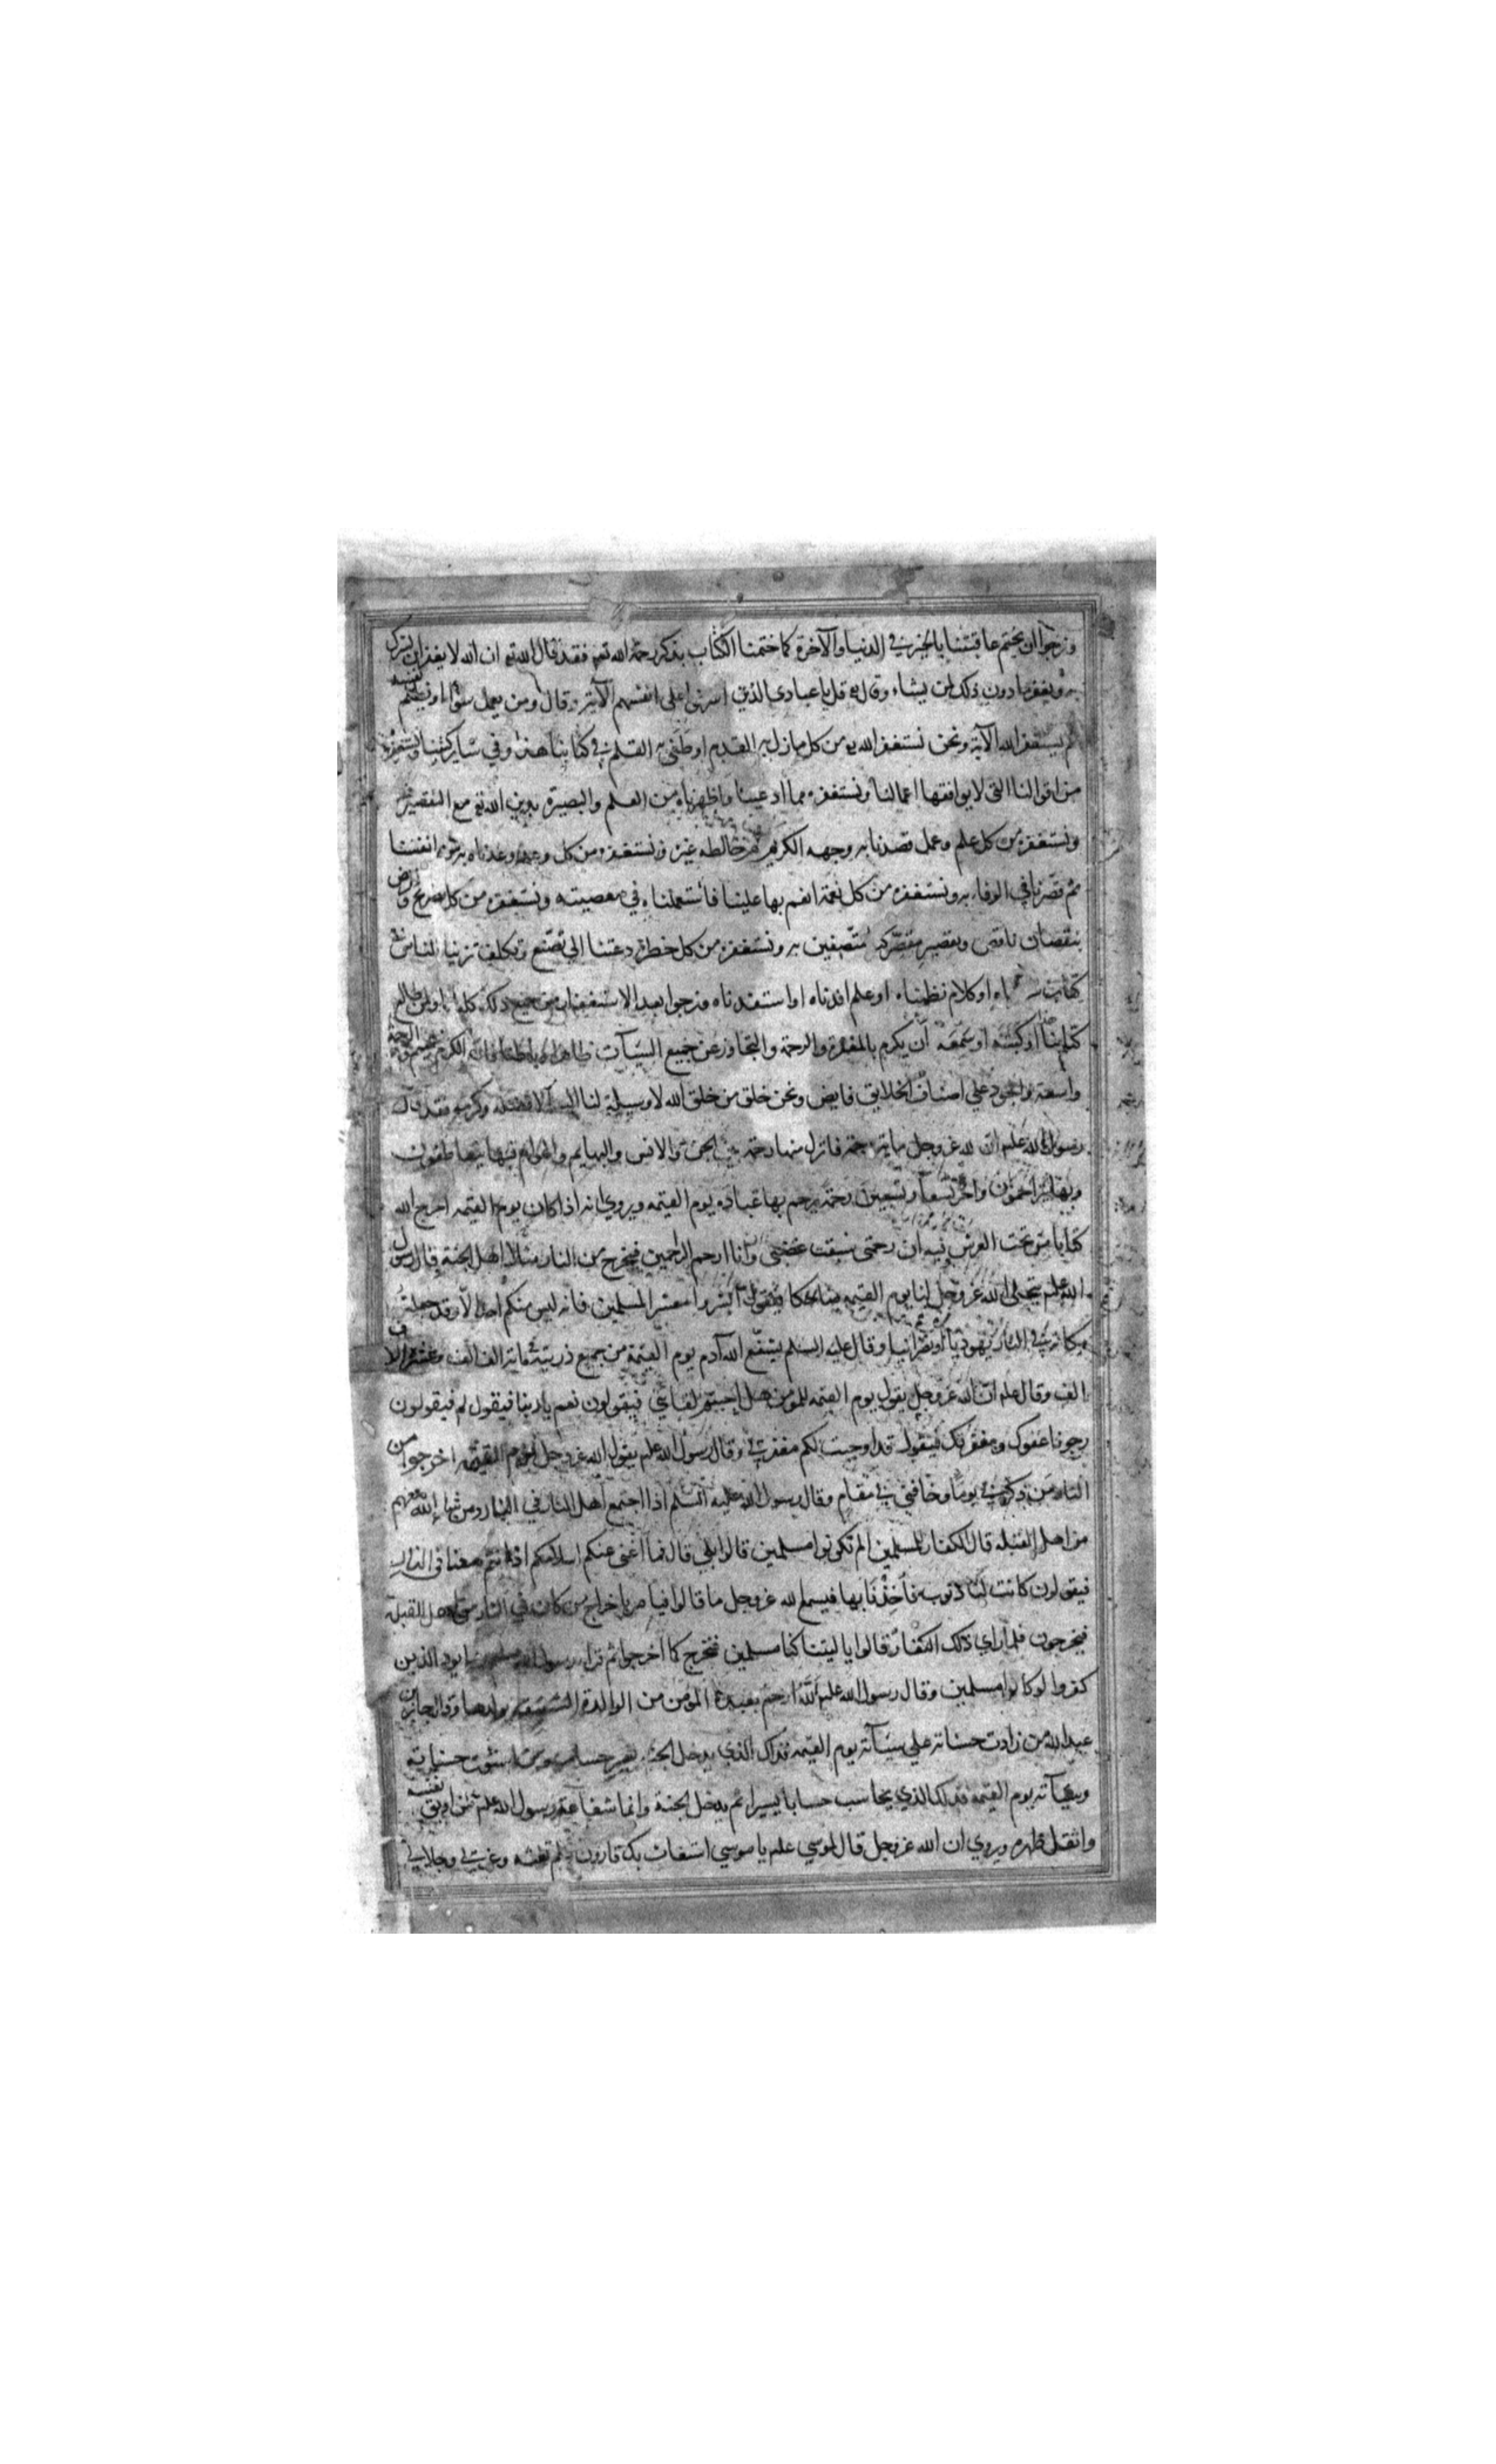 ونرجوا ان يختم عاقبتنا بالخير في الدنيا والآخرة كما ختمنا الكتاب بذكر رحمة الله تعه فقد قال الله تع ان الله لا يغفر ان يشرك
به ويغفر ما دون ذلك لمن يشاء وقال تع قل يا عبادي الذين اسرفوا على انفسهم الآية وقال ومن يعمل سوءا او يظلم نفسه
ثم يستغفر الله الآية ونحن نستغفر الله من كل ما زل به القدم او طغى به القلم في كتابنا هذا وفي سائر كتبنا ونستغفره
من اقوالنا التي لا يوافقها اعمالنا ونستغفره مما ادعينا واظهرناه من العلم والبصيرة بدين الله تع مع التقصير
ونستغفره من كل علم وعمل قصدنا به وجهه الكريم ثم خالطه غيره ونستغفره من كل وعد وعدناه به من انفسنا
ثم قصرنا في الوفاء به ونستغفره من كل نعمة انعم بها علينا فاستعملناه في معصيته ونستغفره من كل تصريح
بنقصان ناقص وتقصير مقصر كنا متصفين به ونستغفره من كل خطرة دعتنا الى تصنع وتكلف تزينا للناس في
كتاب او كلام نظمناه او علم افدناه او استفدناه ونرجوا بعد الاستغفار من جميع ذلك كله لنا ولمن طالع
كتابنا هذا او كتبه او سمعه أن يكرم بالمغفرة والرحمة والتجاوز عن جميع السيآت ظاهرا وباطنا فان الكرم عميم والرحمة
واسعة والجود على اصناف الخلايق فايض ونحن خلق من خلق الله لا وسيلة لنا اليه الا فضله وكرمه فقد قال
رسول الله علم ان لله عز وجل ماية رحمة فانزل منها رحمة بين الجن والانس والبهايم والهوام فبها يتعاطفون
وبها يتراحمون واخر تسعا وتسعين رحمة يرحم بها عباده يوم القيمه ويروي انه اذا كان يوم القيمه اخرج الله
كتابا من تحت العرش فيه ان رحمتي سبقت غضبي وانا ارحم الراحمين فيخرج من النار مثلا اهل الجنة وقال رسول
الله علم يتجلى الله عز وجل لنا يوم القيمه ضاحكا فيقول ابشروا معشر المسلمين فانه ليس منكم احد الا وقد جعلت
مكانه في النار يهوديا او نصرانيا وقال عليه السلم يشفع الله آدم يوم القيمة من جميع ذريته في ماية الف الف وعشرة الاف
الف وقال علم ان الله عز وجل يقول يوم القيمه للمؤمنين هل احببتم لقائي فيقولون نعم يا ربنا فيقول لم فيقولون
رجونا عفوك ومغفرتك فيقول قد اوجبت لكم مغفرتي وقال رسول الله علم يقول الله عز وجل يوم القيمه اخرجوا من
النار من ذكرني يوما وخافني في مقام وقال رسول الله عليه السلم اذا اجتمع اهل النار في النار ومن شاء الله معهم
من اهل القبله قال الكفار للمسلمين الم تكونوا مسلمين قالوا بلى قال فما اغنى عنكم اسلامكم اذ انتم معنا في النار
فيقولون كانت لنا ذنوب فأخذنا بها فيسمع الله عز وجل ما قالوا فيامر باخراج من كان في النار من اهل القبلة
فيخرجون فلما راي ذلك الكفار قالوا يا ليتنا كنا مسلمين فنخرج كما اخرجوا ثم قرا رسول الله ربما يود الذين
كفروا لو كانوا مسلمين وقال رسول الله علم الله ارحم بعبده المؤمن من الوالدة الشفيقة بولدها وقال جابر بن
عبد الله من زادت حسناته على سيآته يوم القيمه فذاك الذي يدخل الجنة بغير حساب ومن استوت حسناته
وسيآته يوم القيمه فذلك الذي يحاسب حسابا يسيرا ثم يدخل الجنة وانما شفاعة رسول الله علم لمن اوبق نفسه
واثقل ظهره ويروي ان الله عز وجل قال لموسي علم يا موسي استغاث بك قارون فلم تغثه وعزتي وجلالي